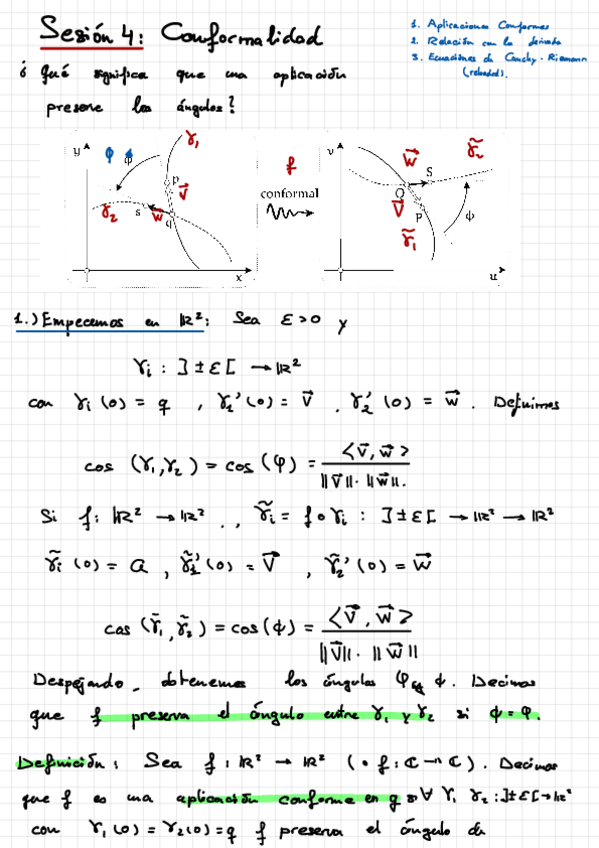 Sesión 4: Conformalidad
1. Aplicaciones Conformes
2. Relación con la derivada
3. Ecuaciones de Cauchy-Riemann
(rebeded).
¿Qué significa que una aplicación
preserve los ángulos?
y φ γ₁ p V⃗ γ₂ s w⃗ q x
f
conformal
v W⃗ S γ̃₂ Q V⃗ P γ̃₁ ϕ u
1.) Empecemos en ℝ²: Sea ε>0 y
γi : ]±ε[ → ℝ²
con γi(0) = q , γ₁'(0) = v⃗ , γ₂'(0) = w⃗ . Definimos
cos (γ₁,γ₂) = cos (φ) = <v⃗, w⃗> / ||v⃗||. ||w⃗||.
Si f: ℝ² → ℝ² , γ̃i = f∘γi : ]±ε[ → ℝ² → ℝ²
γ̃i(0) = Q , γ̃₁'(0) = V⃗ , γ̃₂'(0) = W⃗
cos (γ̃₁, γ̃₂) = cos(ϕ) = <V⃗, W⃗> / ||V⃗||. ||W⃗||
Despejando, obtenemos los ángulos φ y ϕ. Decimos
que f preserva el ángulo entre γ₁ y γ₂ si ϕ = φ.
Definición: Sea f: ℝ² → ℝ² (o f: ℂ → ℂ). Decimos
que f es una aplicación conforme en q si ∀ γ₁ γ₂ : ]±ε[→ℝ²
con γ₁(0) = γ₂(0) = q f preserva el ángulo de